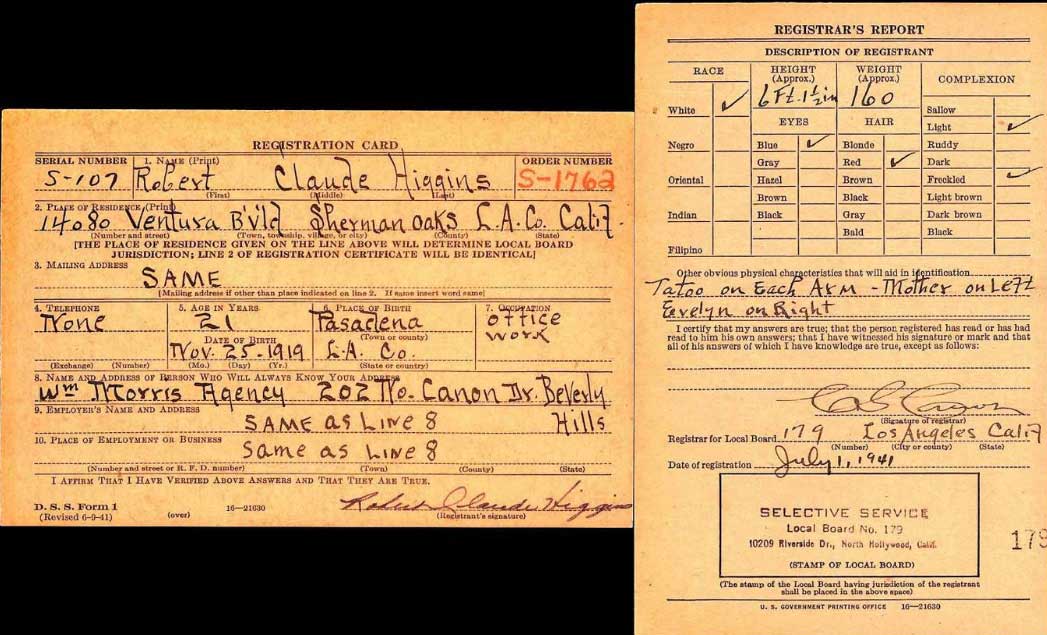 REGISTRATION CARD
SERIAL NUMBER 1. NAME (Print) ORDER NUMBER
S-107 Robert Claude Higgins S-1762
(First) (Middle) (Last)
2. PLACE OF RESIDENCE (Print)
14080 Ventura B'vld Sherman Oaks L.A. Co. Calif.
(Number and street) (Town, township, village, or city) (County) (State)
[THE PLACE OF RESIDENCE GIVEN ON THE LINE ABOVE WILL DETERMINE LOCAL BOARD
JURISDICTION; LINE 2 OF REGISTRATION CERTIFICATE WILL BE IDENTICAL]
3. MAILING ADDRESS
SAME
[Mailing address if other than place indicated on line 2. If same insert word same]
4. TELEPHONE 5. AGE IN YEARS 6. PLACE OF BIRTH 7. OCCUPATION
None 21 Pasadena office
(Town or county) work
DATE OF BIRTH
Nov. 25-1919 L.A. Co.
(Exchange) (Number) (Mo.) (Day) (Yr.) (State or country)
8. NAME AND ADDRESS OF PERSON WHO WILL ALWAYS KNOW YOUR ADDRESS
Wm Morris Agency - 202 No. Canon Dr. Beverly
9. EMPLOYER'S NAME AND ADDRESS Hills
SAME as Line 8
10. PLACE OF EMPLOYMENT OR BUSINESS
Same as Line 8
(Number and street or R. F. D. number) (Town) (County) (State)
I AFFIRM THAT I HAVE VERIFIED ABOVE ANSWERS AND THAT THEY ARE TRUE.
D. S. S. Form 1 16—21630 Robert Claude Higgins
(Revised 6-9-41) (over) (Registrant's signature)
REGISTRAR'S REPORT
DESCRIPTION OF REGISTRANT
RACE HEIGHT (Approx.) WEIGHT (Approx.) COMPLEXION
6 Ft. 1½ in 160
White ✓ Sallow
EYES HAIR Light ✓
Negro Blue ✓ Blonde Ruddy
Gray Red ✓ Dark
Oriental Hazel Brown Freckled ✓
Brown Black Light brown
Indian Black Gray Dark brown
Bald Black
Filipino
Other obvious physical characteristics that will aid in identification
Tatoo on Each Arm - Mother on Left
Evelyn on Right
I certify that my answers are true; that the person registered has read or has had
read to him his own answers; that I have witnessed his signature or mark and that
all of his answers of which I have knowledge are true, except as follows:
(Signature of registrar)
Registrar for Local Board 179 Los Angeles Calif
(Number) (City or county) (State)
Date of registration July 1, 1941
SELECTIVE SERVICE
Local Board No. 179
10209 Riverside Dr., North Hollywood, Calif.
179
(STAMP OF LOCAL BOARD)
(The stamp of the Local Board having jurisdiction of the registrant
shall be placed in the above space)
U. S. GOVERNMENT PRINTING OFFICE 16—21630